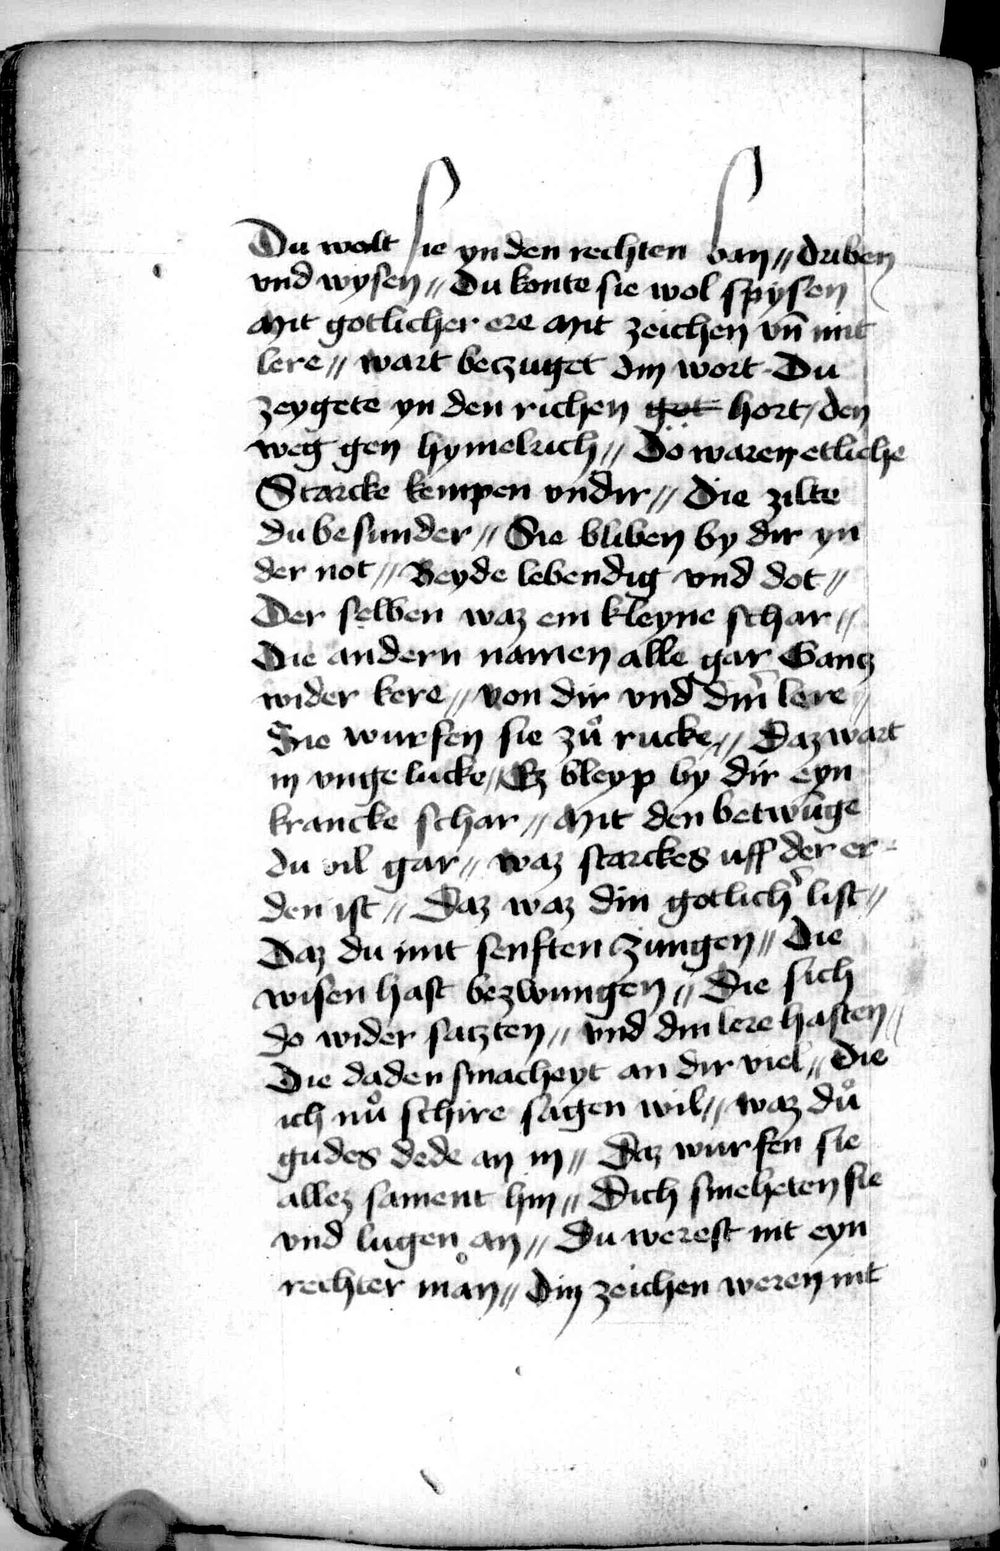 Du wolt sie yn den rechten ban // druben
vnd wysen // Du konte sie wol spysen
Mit gotlicher ere Mit zeichen vn̄ mit
lere // wart beczuget din wort Du
zeygete yn den richen got hort / den
weg gen hymelrich // Do waren etliche
Starcke kempen vndir // Die zilte
du besunder // Sie bliben by dir yn
der not // Beyde lebendig vnd dot //
Der selben waz ein kleyne schar //
Die andern namen alle gar Gantz
wider kere // von dir vnd din̄ lere //
Sie wurfen sie zuͦ rucke // Daz wart
in vngelucke // Ez bleyp by dir eyn
krancke schar // Mit den betwūge
du vil gar // waz starckes uff der er-
den ist // Daz waz din gotlich̄ list //
Daz du mit senften zungen // Die
wisen hast bezwungen // Die sich
do wider satzten // vnd din lere hasten //
Die daden smacheyt an dir viel // Die
ich nuͦ schire sagen wil // waz duͦ
gudes dede an in // Daz wurfen sie
allez sament hin // Dich smeheten sie
vnd lugen an // Du werest nit eyn
rechter maͦn // Din zeichen weren nit